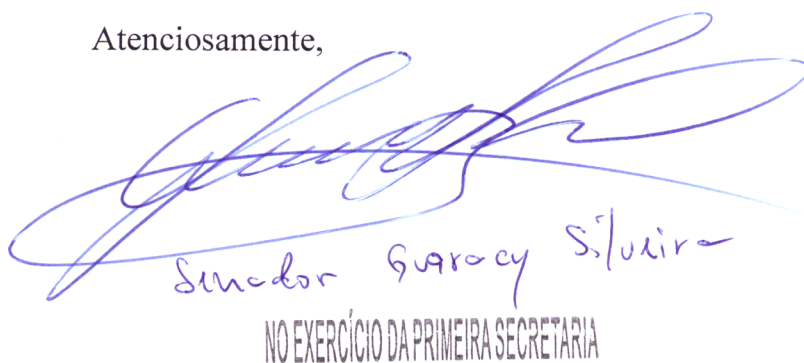 Atenciosamente,
Senador Guaracy Silveira
NO EXERCÍCIO DA PRIMEIRA SECRETARIA